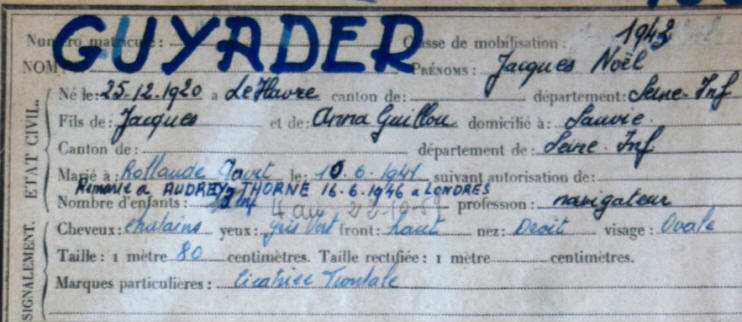 GUYADER
Numéro matricule : Classe de mobilisation : 1943
NOM PRÉNOMS : Jacques Noël
Né le : 25-12-1920 à Le Havre canton de : département : Seine-Inf
Fils de : Jacques et de : Anna Guillou domicilié à : Sanvic
Canton de : département de : Seine-Inf
Marié à : Rollande le : 10.6.1941 suivant autorisation de :
Remarié à AUDREY THORNE 16.6.1946 à LONDRES
Nombre d'enfants : profession : navigateur
Cheveux : chatains yeux : gris vert front : haut nez : Droit visage : Ovale
Taille : 1 mètre 80 centimètres. Taille rectifiée : 1 mètre centimètres.
Marques particulières : Cicatrice Frontale
ETAT CIVIL.
SIGNALEMENT.